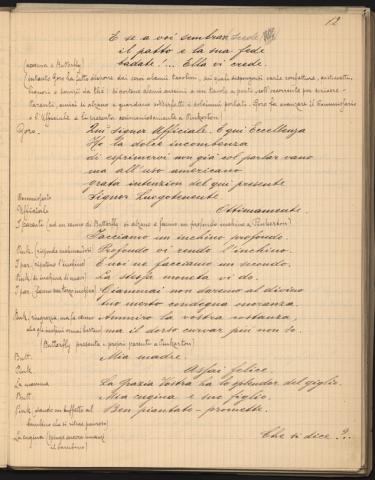 12
E se a voi sembran
il patto e la sua fede
badate!... Ella vi crede.
(accenna a Butterfly)
(intanto Goro ha fatto disporre dai servi alcuni tavolini, sui quali dispongono varie confetture, pasticcetti,
liquori e servizi da thè: si portano alcuni cuscini e un tavolo a parte coll'occorrente per scrivere.
I parenti, amici si alzano e guardano soddisfatti i dolciumi portati. Goro fa avanzare il Commissario
e l'Ufficiale e li presenta a Pinkerton)
Goro.
Qui signor Ufficiale. E qui Eccellenza
Ho la dolce incombenza
di esprimervi non già sol parlar vano
ma all'uso americano
grata intenzion del qui presente
Signor Luogotenente.
Commissario
Ufficiale
Ottimamente.
I parenti (ad un cenno di Butterfly si alzano e fanno un profondo inchino a Pinkerton)
Facciamo un inchino profondo
Pink.
Profondo vi rendo l'inchino.
I par. (ripetono l'inchino)
E noi ne facciamo un secondo.
Pink.
La stessa moneta vi do.
I par. (fanno un terzo inchino)
Giammai non daremo al divino
suo merto condegna onoranza.
Pink.
Ammiro la vostra costanza,
ma il dorso curvar più non so.
(Butterfly presenta i propri parenti a Pinkerton)
Butt.
Mia madre.
Pink
Assai felice.
La mamma
La Grazia Vostra ha lo splendor del giglio.
Butt.
Mia cugina e suo figlio.
Pink. dando un buffetto al
bambino che si ritira pauroso
Ben piantato - promette.
La cugina
il bambino)
Che si dice?..